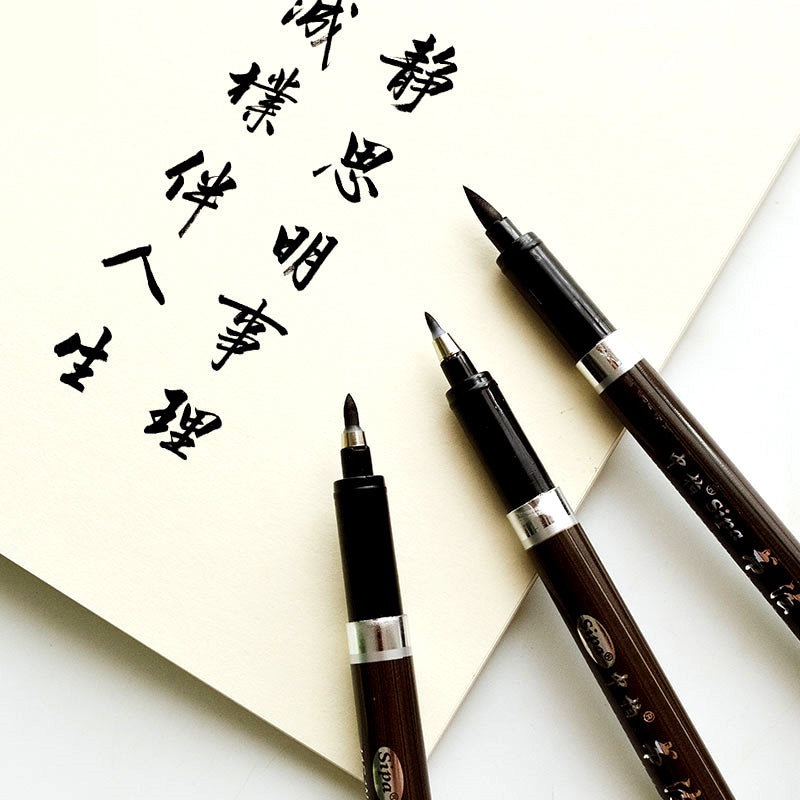 静思明事理
诚樸伴人生
Sipa®
中柏®
中柏®Sipa 书法
Sipa